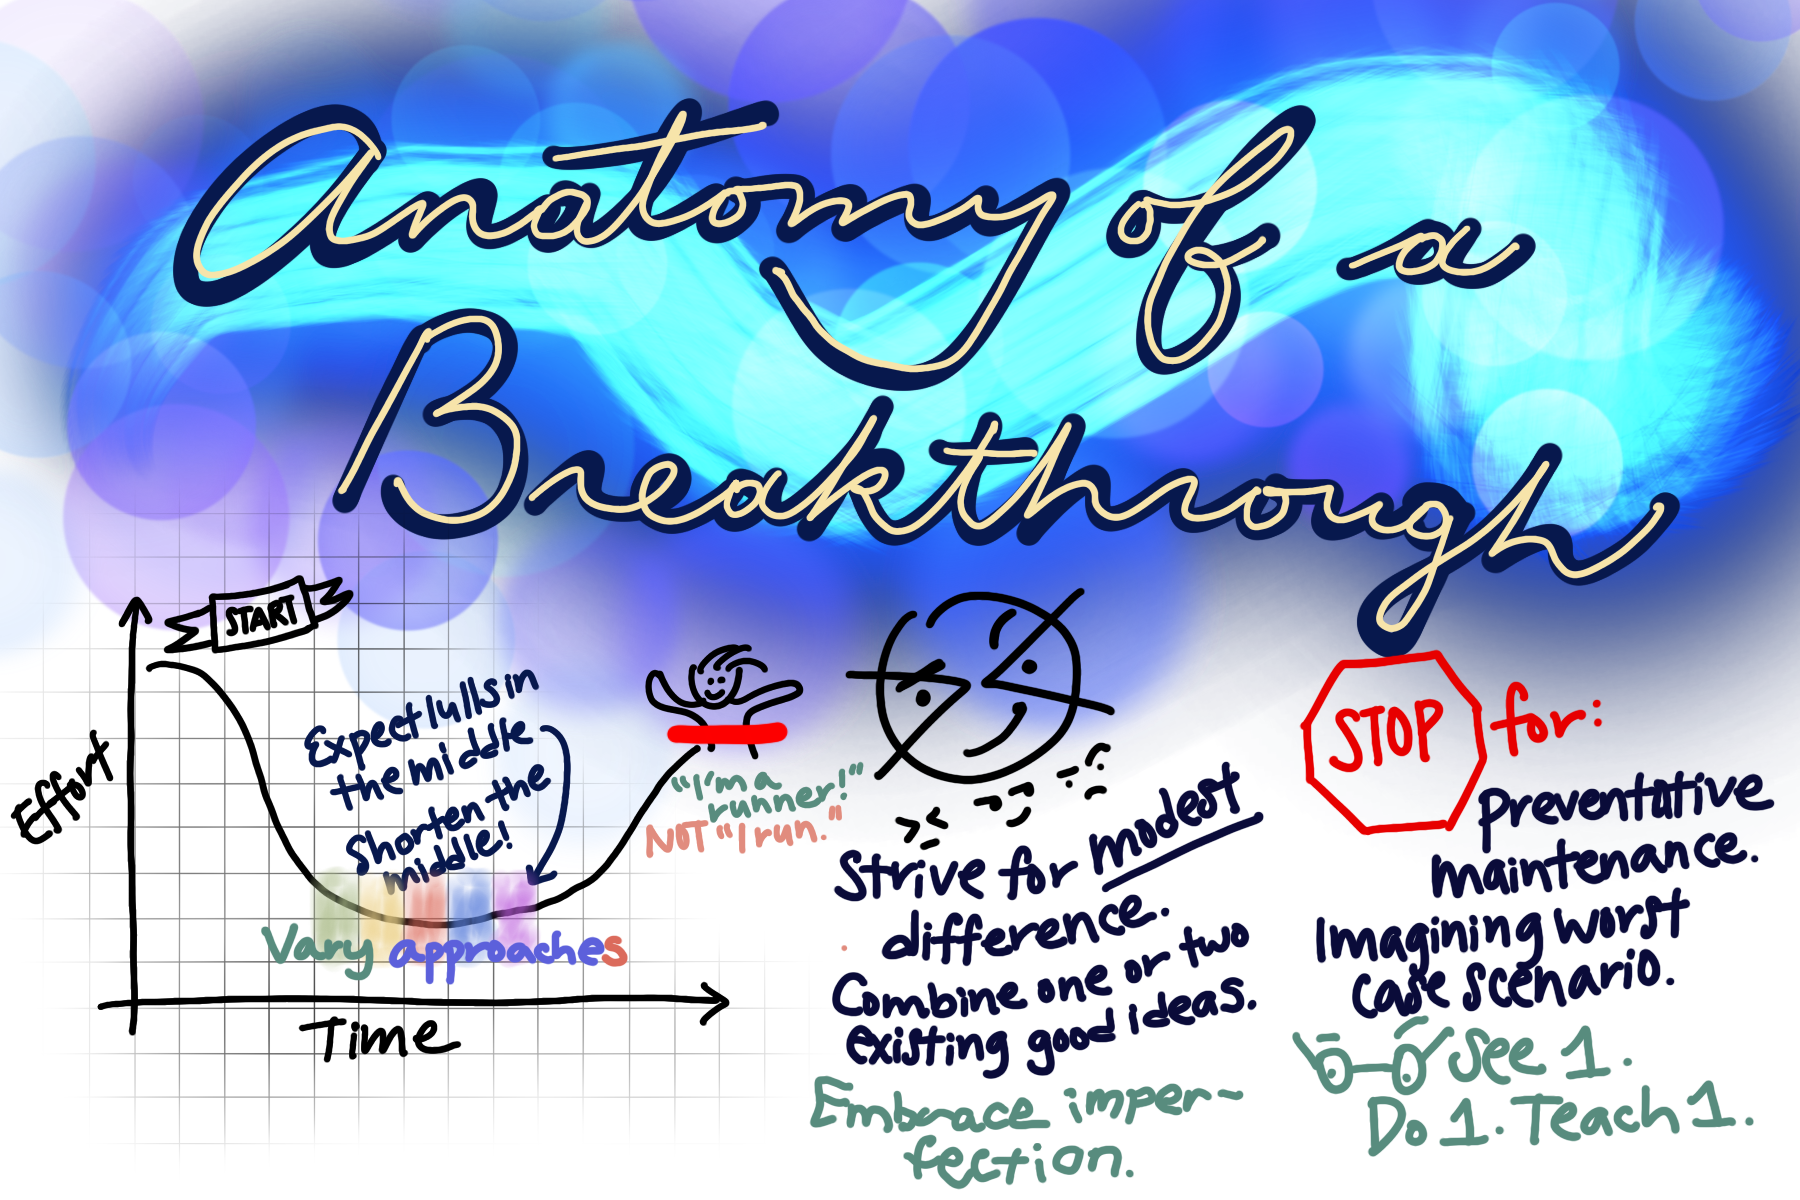 Anatomy of a
Breakthrough
START
Effort
Expect lulls in
the middle
Shorten the
middle!
Vary approaches
Time
"I'm a
runner!"
NOT "I run."
Strive for modest
difference.
Combine one or two
existing good ideas.
Embrace imper-
fection.
STOP for:
Preventative
maintenance.
Imagining worst
case scenario.
See 1.
Do 1. Teach 1.